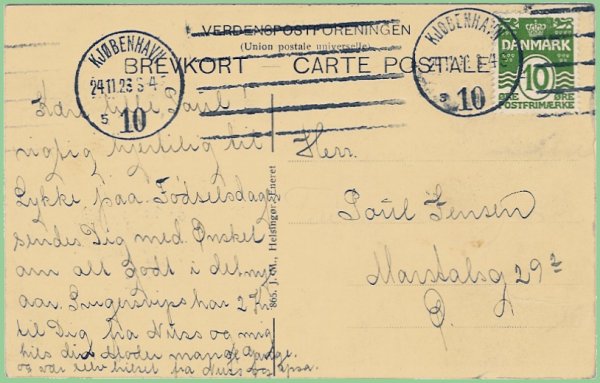 VERDENSPOSTFORENINGEN
(Union postale universelle)
BREVKORT CARTE POSTALE
KJØBENHAVN
24.11.23 3-4
5 10
KJØBENHAVN
24.11.23 3-4
5 10
DANMARK
10
ØRE ØRE
POSTFRIMÆRKE
Kære lille Poul!
hjertelig til
Lykke paa Fødselsdagen
sendes Dig med Ønsket
om alt Godt i det nye
aar. har 2 Kr
til Dig fra Nuss og mig
hils din Moder mange Gange.
og vær selv hilset fra Nuss og
865. J. M., Helsingør. Eneret
Herr.
Poul Jensen
Marstalsg 29²
Ø.